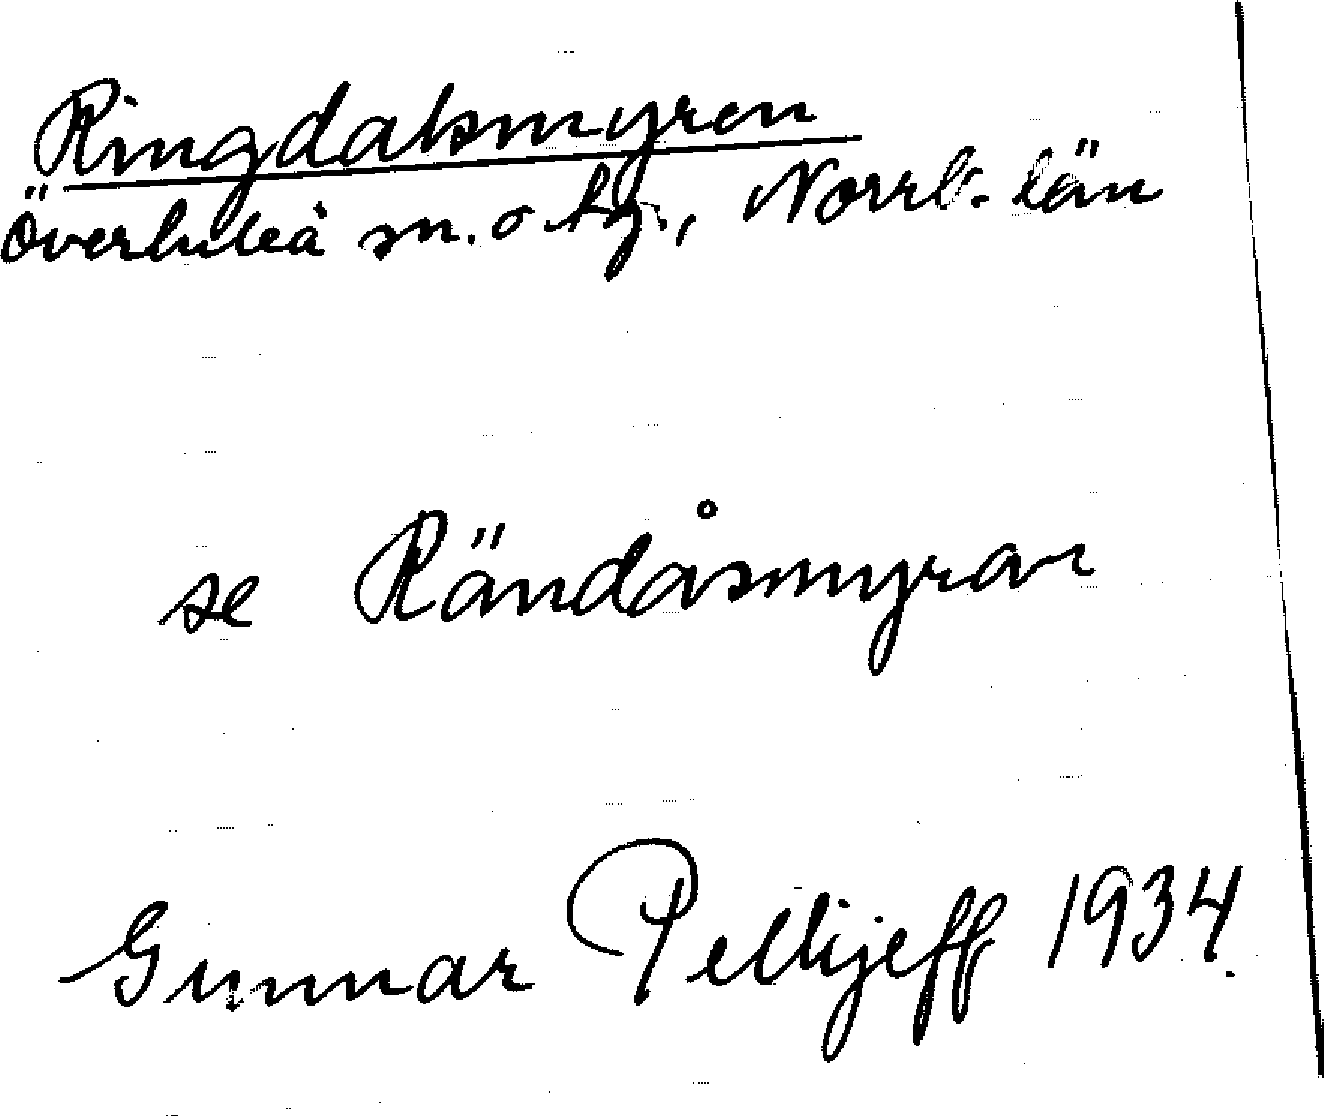 Ringdalsmyren
Överluleå sn. o tg., Norrb. län
se Rändåsmyrar
Gunnar Pellijeff 1934.